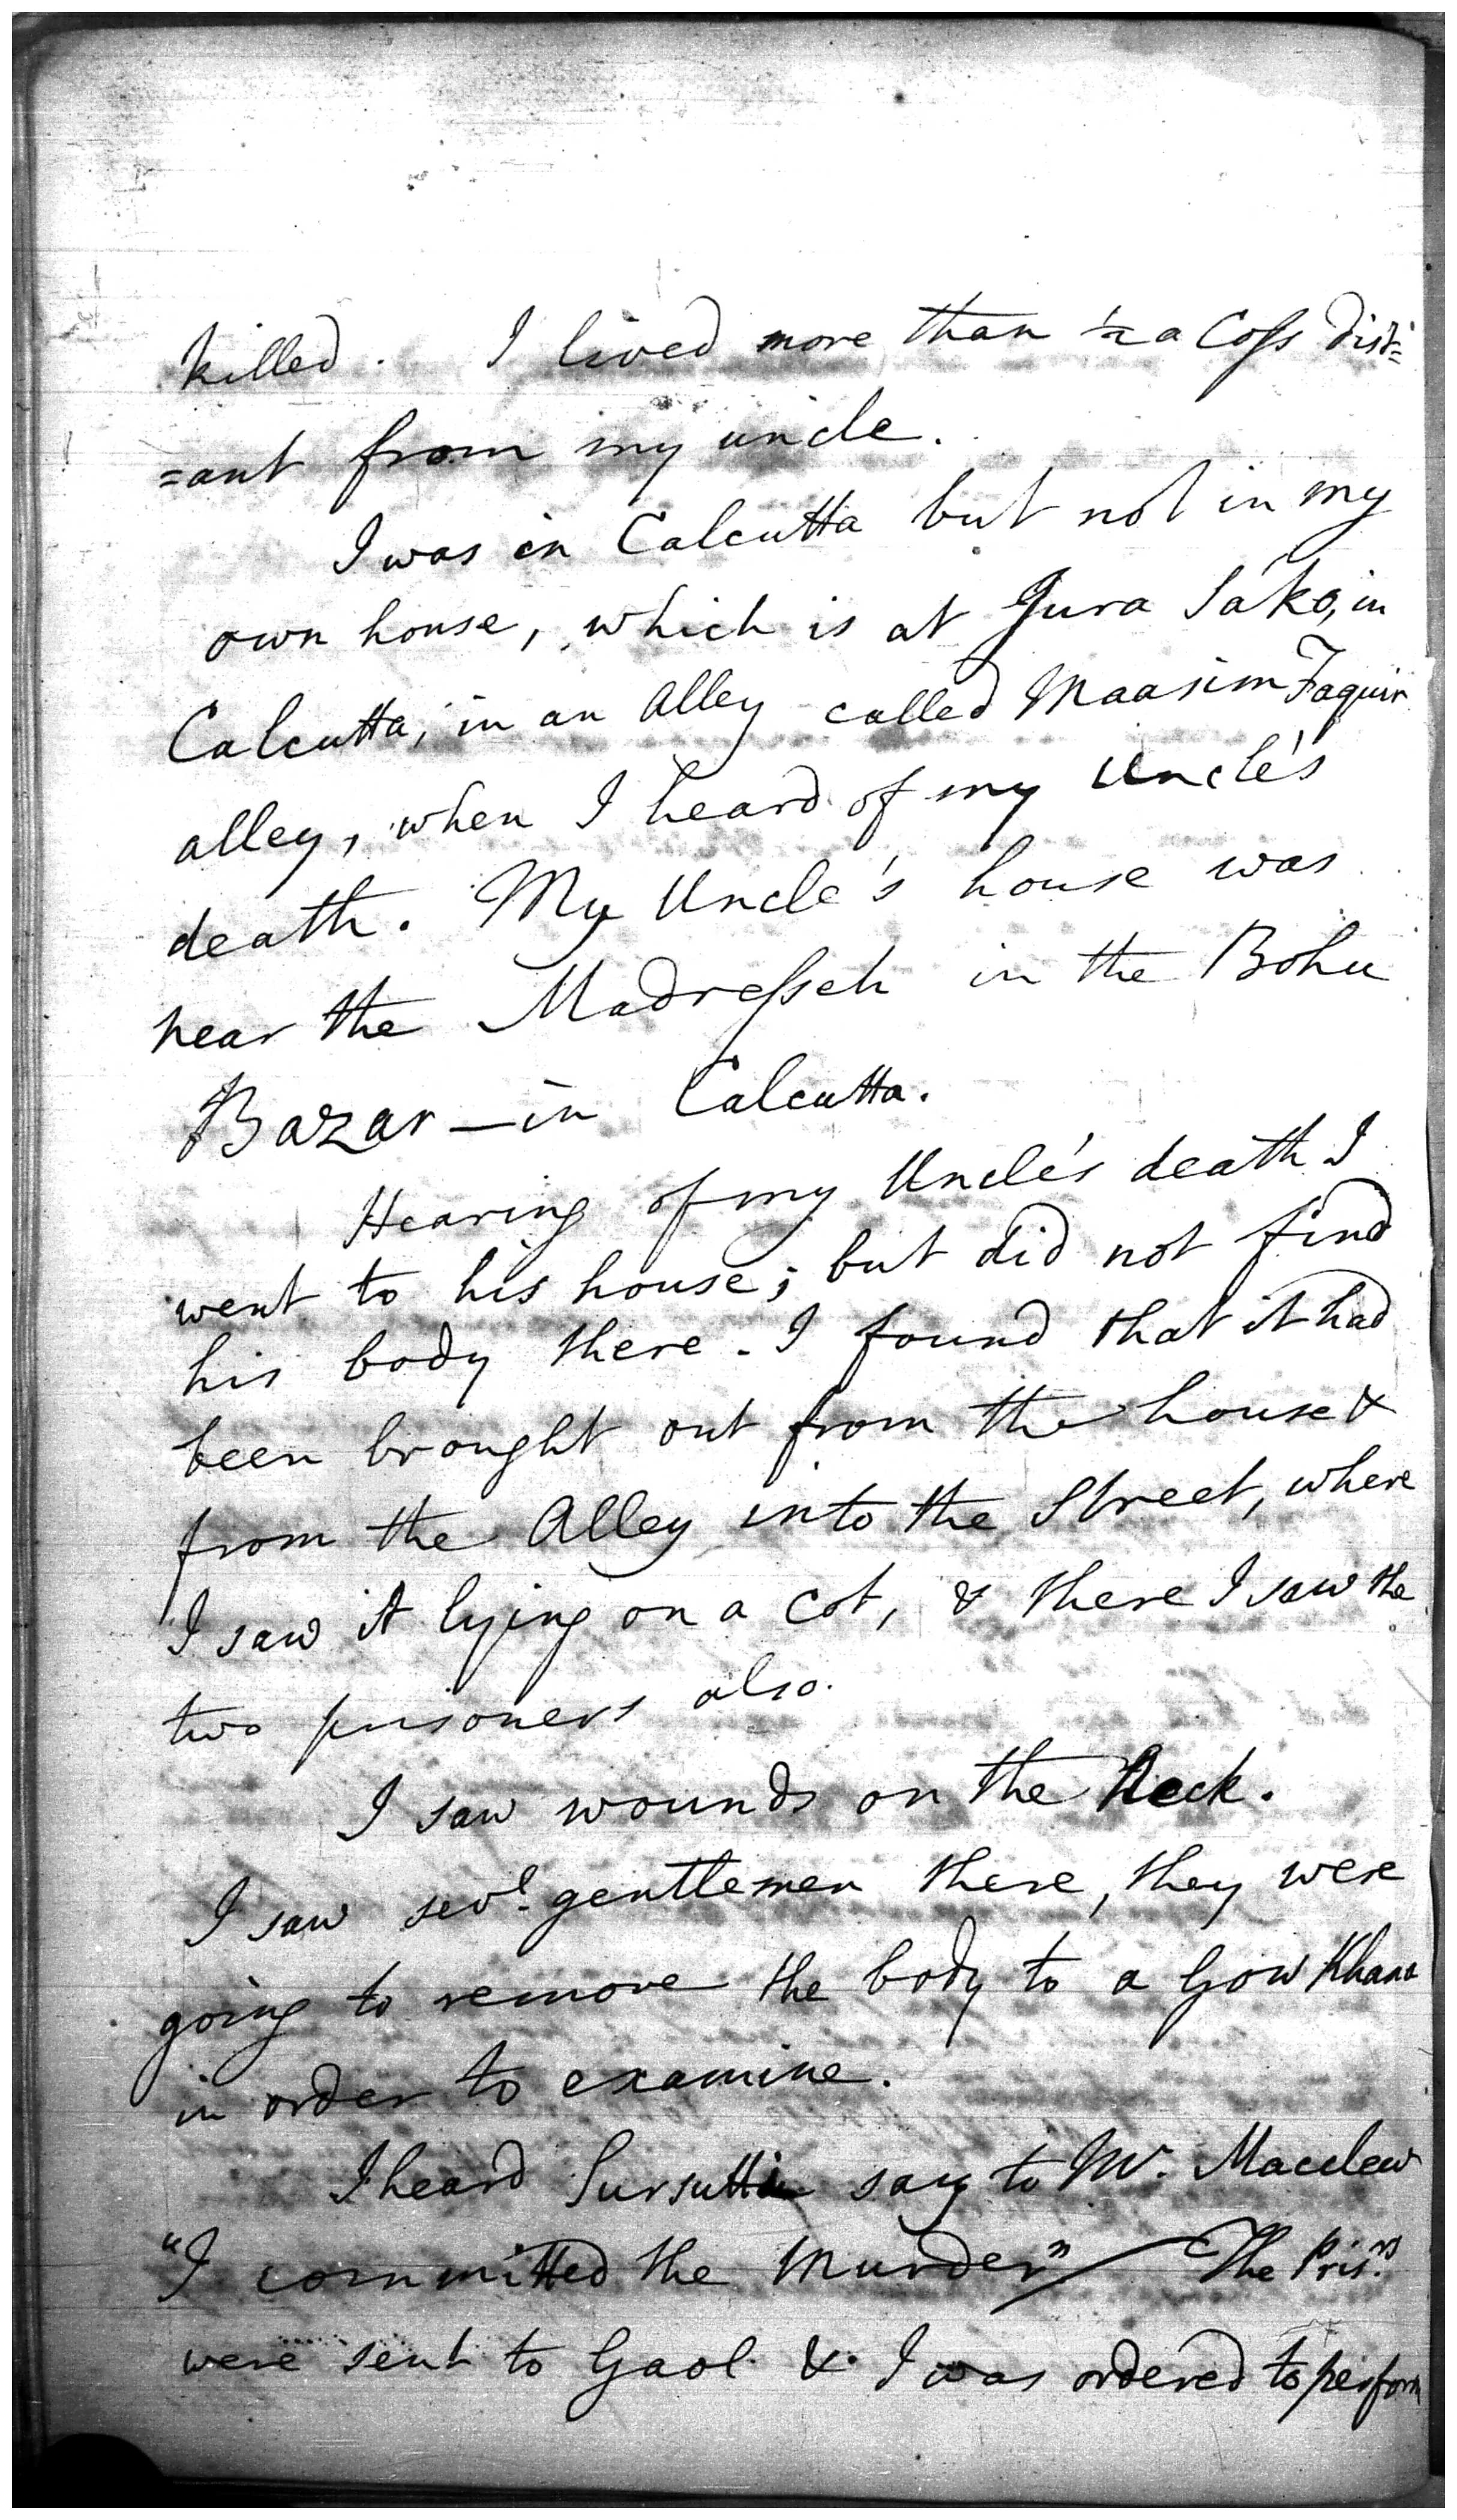 killed. I lived more than ½ a Coss dist=
=ant from my uncle.
I was in Calcutta but not in my
own house, which is at Jura Sako, in
Calcutta, in an Alley called Maasim Faquir
alley, when I heard of my Uncle's
death. My Uncle's house was
near the Madresseh in the Bohu
Bazar – in Calcutta.
Hearing of my Uncle's death I
went to his house; but did not find
his body there. I found that it had
been brought out from the house &
from the Alley into the Street, where
I saw it lying on a Cot, & there I saw the
two prisoners also.
I saw wounds on the Neck.
I saw sevl. gentlemen there, they were
going to remove the body to a Gow Khana
in order to examine.
I heard Sursutti say to Mr.
"I committed the Murder" The Prisrs.
were sent to Gaol & I was ordered to perform